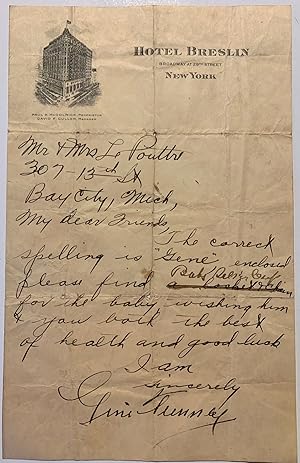 HOTEL BRESLIN
BROADWAY AT 29TH STREET
NEW YORK
DAVID F. CULLEN, MANAGER
Mr & Mrs Le Pouttre
307-13th St
Bay City, Mich,
My dear Friends,
The correct
spelling is "Gene" enclosed
please find Baby
for the baby wishing him
& you both the best
of health and good luck
I am
Sincerely
Gene Tunney